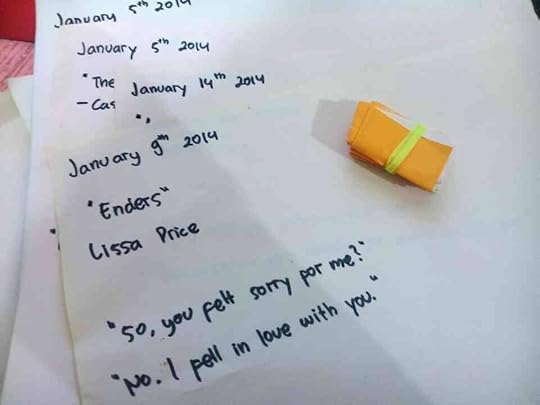 January 5th 2014
January 5th 2014
"The
- Cas
January 14th 2014
January 9th 2014
"Enders"
Lissa Price
"So, you felt sorry for me?"
"No. I fell in love with you."